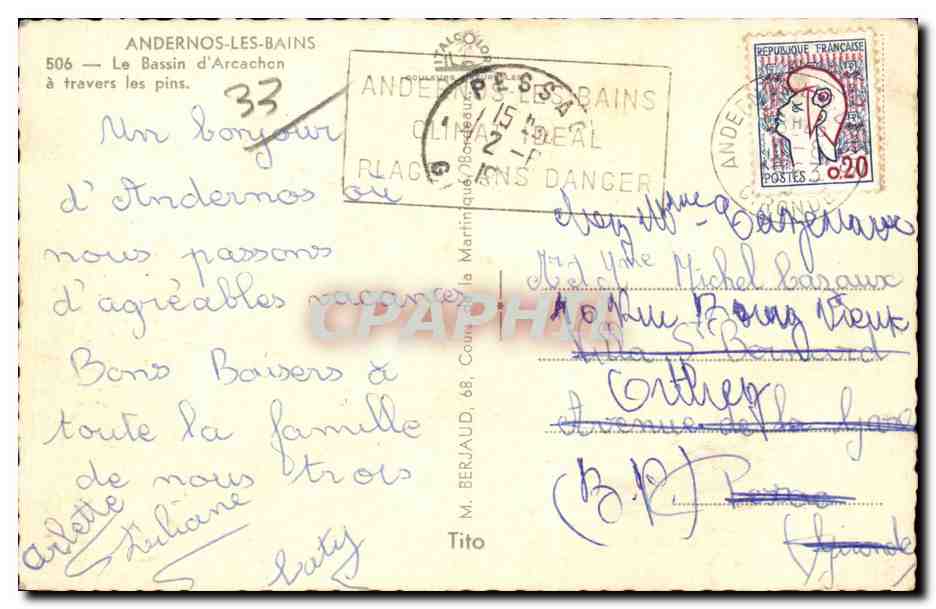 ANDERNOS-LES-BAINS
506 — Le Bassin d'Arcachon
à travers les pins.
33
ANDERNOS-LES-BAINS
CLIMAT IDEAL
PLAGE SANS DANGER
PESSAC
15
2
ANDER
GIRONDE
REPUBLIQUE FRANÇAISE
POSTES 0,20
Un bonjour
d'Andernos où
nous passons
d'agréables vacances
Bons Baisers à
toute la famille
de nous trois
Arlette
Liliane
Caty
M. BERJAUD, 68, Cours de la Martinique, Bordeaux
Tito
chez Mme Cazenave
Mr et Mme Michel Cazaux
Rue Bourg Vieux
Villa St Bernard
Orthez
Avenue de la Gare
(B.P.)
Gironde
CPAPHIL